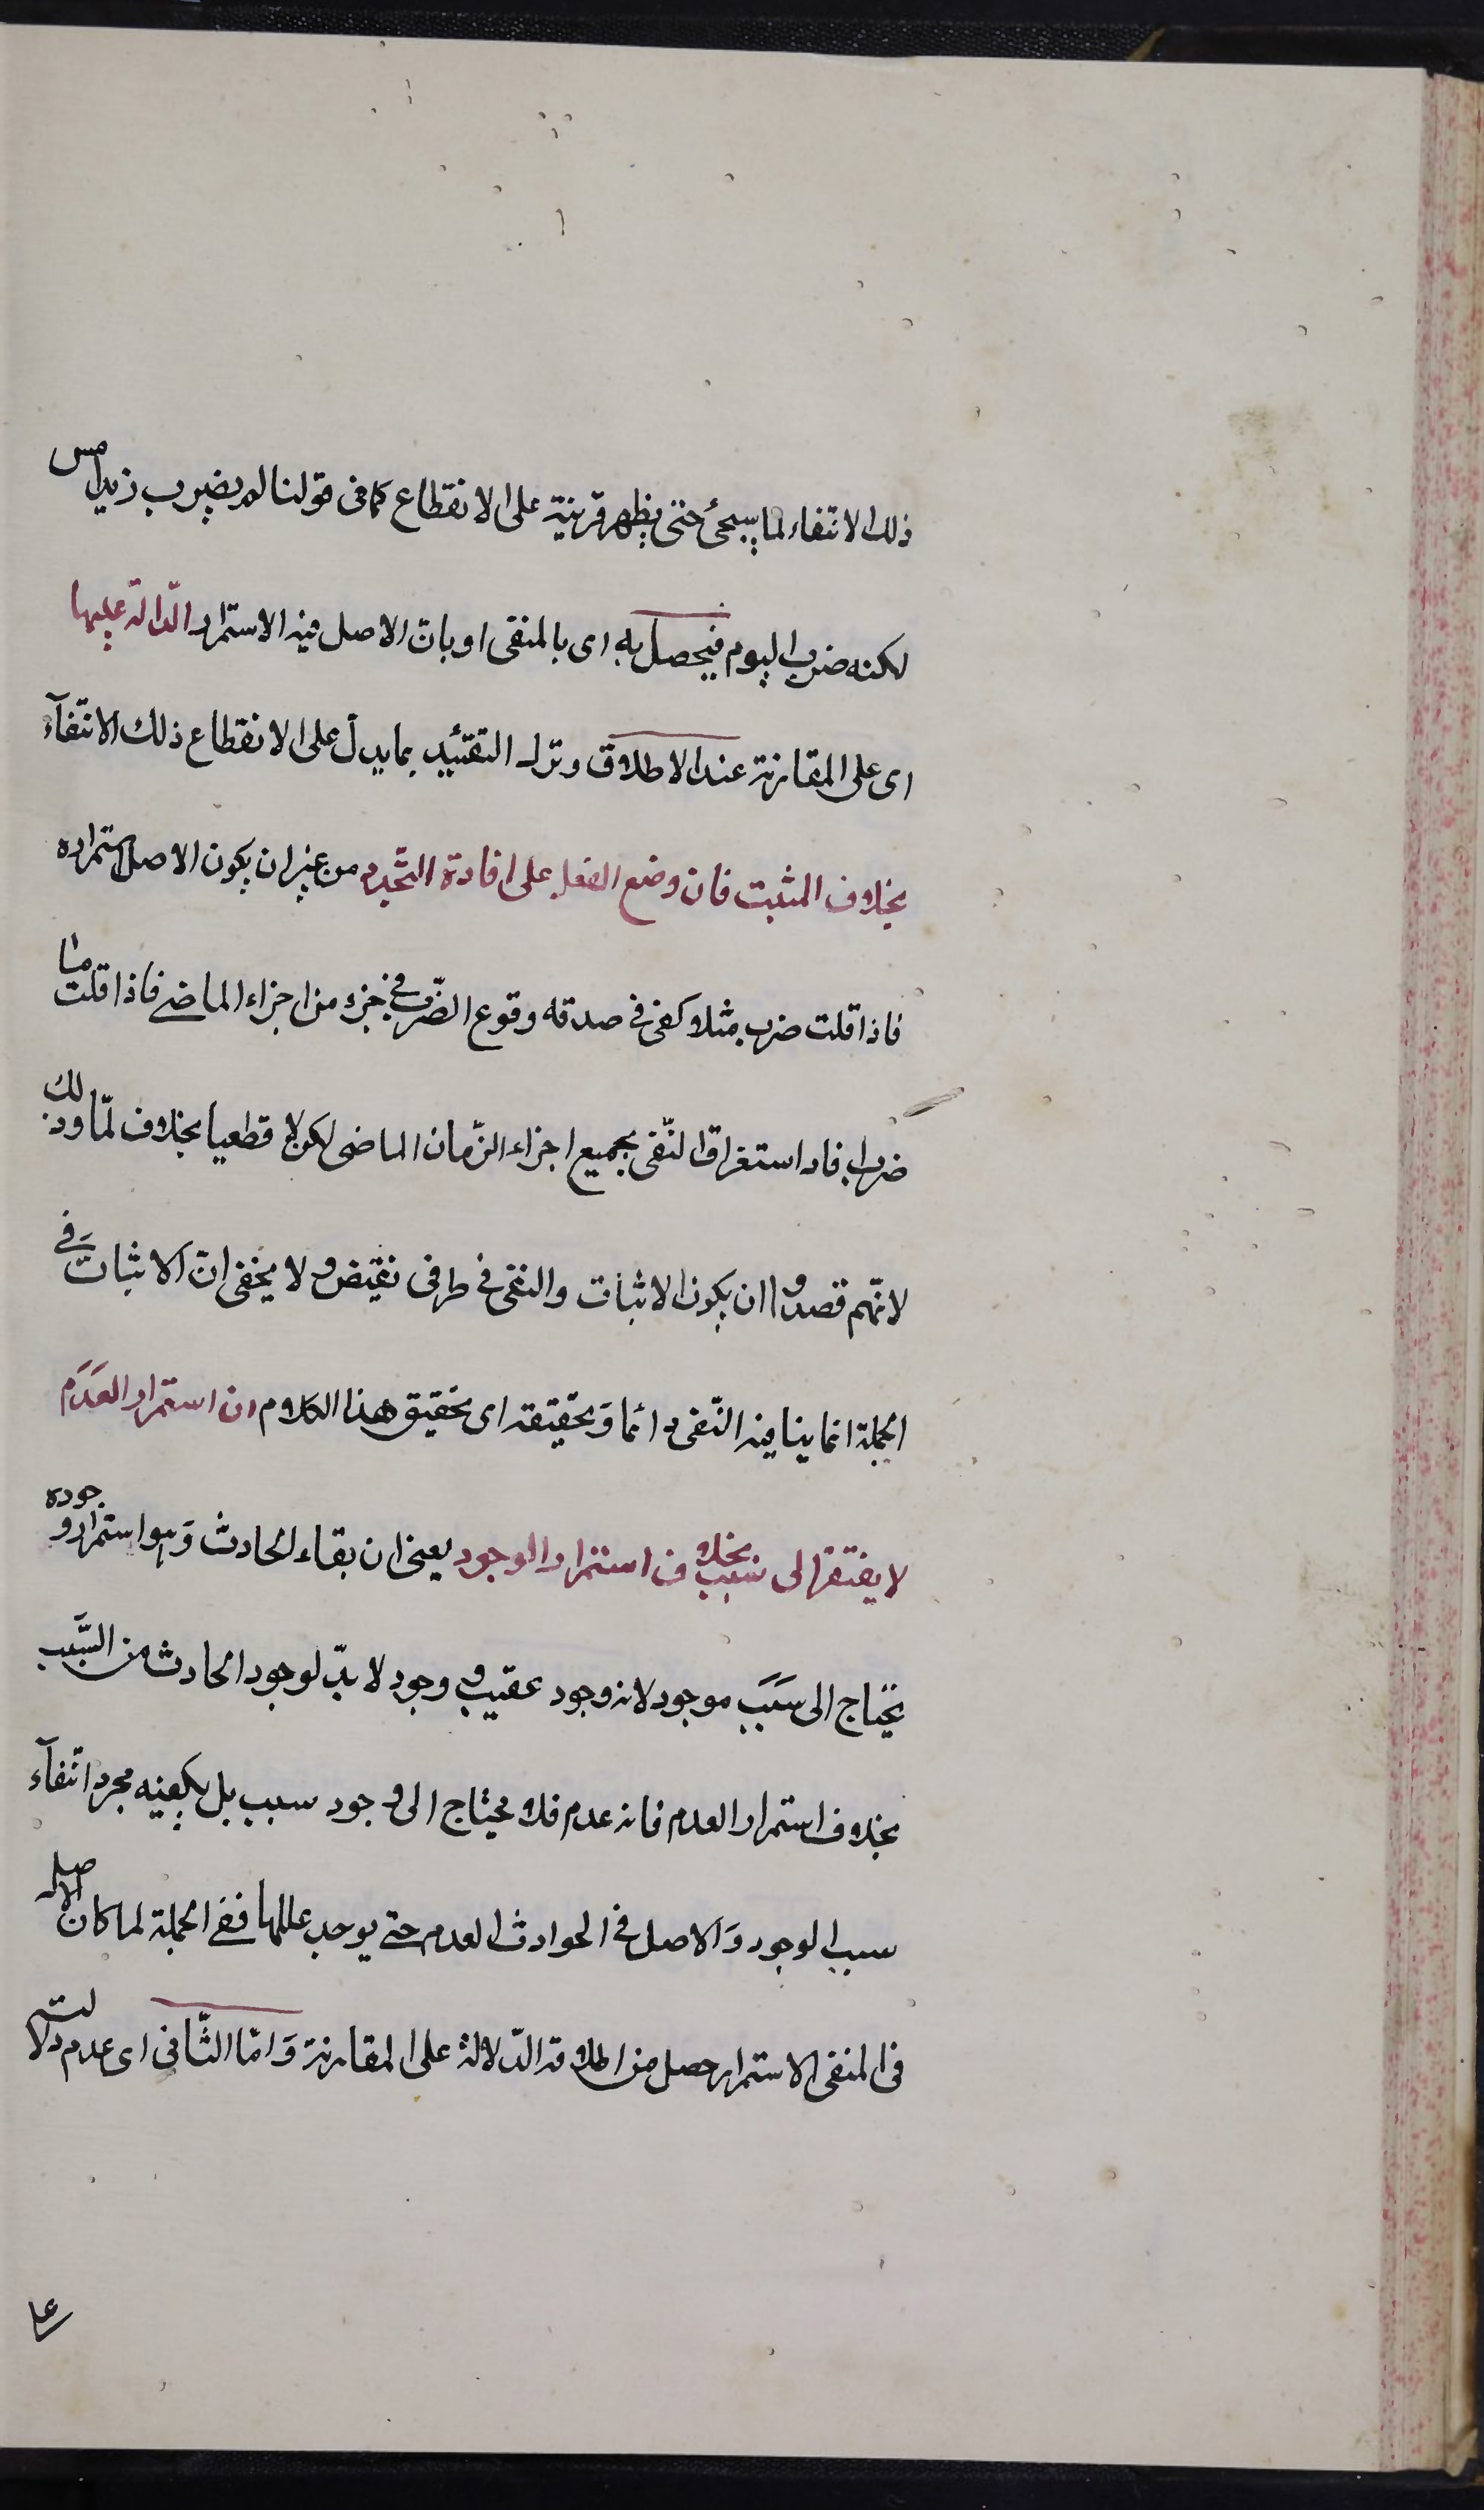 ذلك الانتفاء لما سيجئ حتى يظهر قرينة على الانقطاع كما فى قولنا لم يضرب زيد امس
لكنه ضرب اليوم فيحصل به اى بالمنفى او بان الاصل فيه الاستمرار الدّالة عليها
اى على المقارنة عند الاطلاق وترك التقئيد بما يدل على الانقطاع ذلك الانتفآء
بخلاف المثبت فان وضع الفعل على افادة التّجدد من غير ان يكون الاصل استمراره
فاذا قلت ضرب مثلا كفى فى صدقه وقوع الضّرب فى جزء من اجزاء الماضى فاذا قلت ما
ضرب افاد استغراق النّفى بجميع اجزاء الزّمان الماضى لكن لا قطعيا بخلاف لمّا وذلك
لانّهم قصدوا ان يكون الاثبات والنفى فى طرفى نقيض ولا يخفى انّ الاثبات فى
الجملة انما ينافيه النّفى دائما وَتحقيقه اى تحقيق هذا الكلام ان استمرار العَدَم
لا يفتقر الى سبب بخلاف استمرار الوجود يعنى ان بقاء الحادث وَهو استمرار وجوده
يحتاج الى سَبَب موجود لانه وجود عقيب وجود لا بدّ لوجود الحادث من السَّبَب
بخلاف استمرار العدم فانه عدم فلا يحتاج الى وجود سبب بل يكفيه مجرد انتفآء
سبب الوجود وَالاصل فى الحوادث العدم حتى يوجد عللها ففى الجملة لما كان الاصل
فى المنفى الاستمرار حصل من اطلاقه الدّلالة على المقارنة وَامّا الثّانى اى عدم دلالته